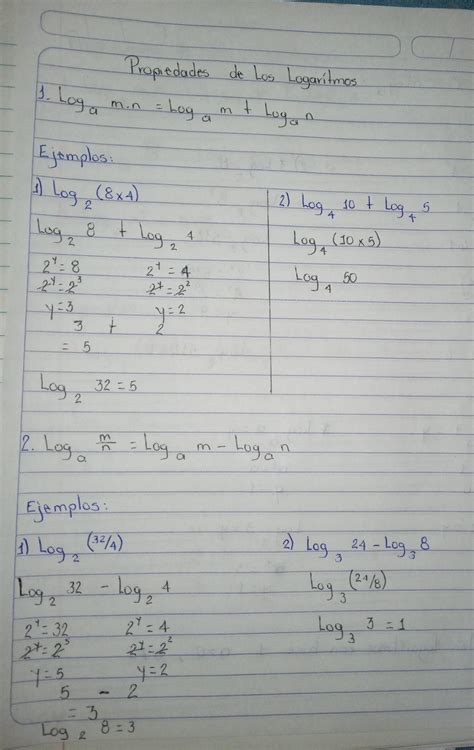 Propiedades de Los Logaritmos
1. Log_a m.n = Log_a m + Log_a n
Ejemplos:
1) Log_2 (8x4)
Log_2 8 + Log_2 4
2^y = 8 2^y = 4
2^y = 2^3 2^y = 2^2
y = 3 y = 2
3 + 2
= 5
Log_2 32 = 5
2) Log_4 10 + Log_4 5
Log_4 (10 x 5)
Log_4 50
2. Log_a m/n = Log_a m - Log_a n
Ejemplos:
1) Log_2 (32/4)
Log_2 32 - Log_2 4
2^y = 32 2^y = 4
2^y = 2^5 2^y = 2^2
y = 5 y = 2
5 - 2
= 3
Log_2 8 = 3
2) Log_3 24 - Log_3 8
Log_3 (24/8)
Log_3 3 = 1